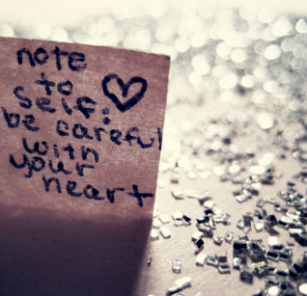 note
to
self:
be careful
with
your
heart